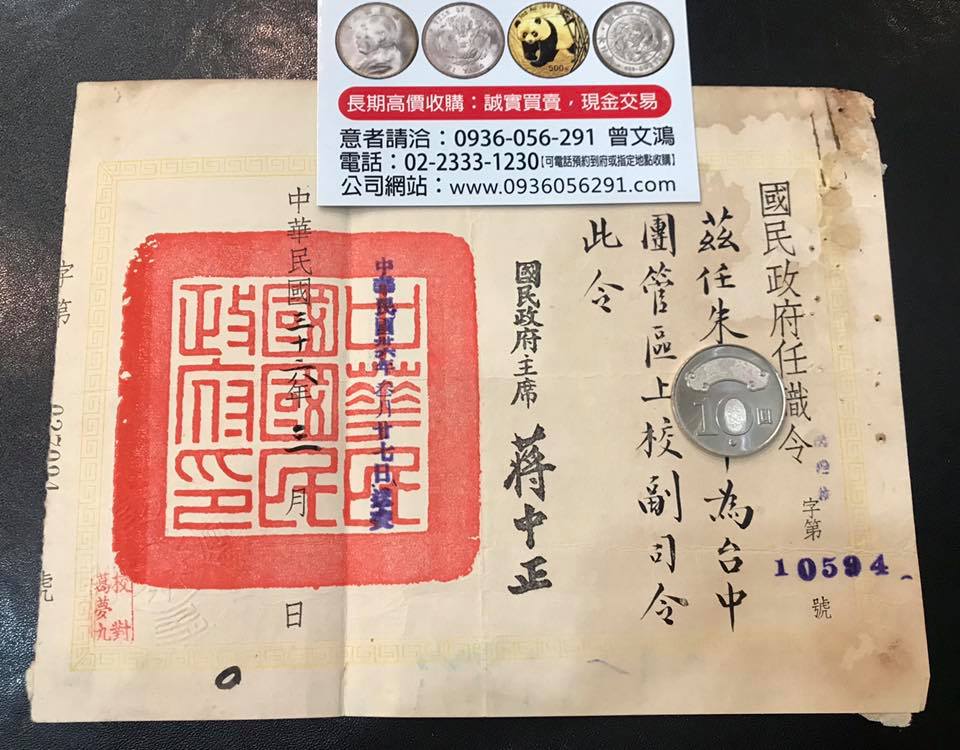 長期高價收購：誠實買賣，現金交易
意者請洽：0936-056-291 曾文鴻
電話：02-2333-1230【可電話預約到府或指定地點收購】
公司網站：www.0936056291.com
國民政府任職令
字第
10594
號
茲任朱
為台中
團管區上校副司令
此令
國民政府主席 蔣中正
中華民國卅六年叁月廿七日
中華民國三十六年三月 日
中華民國國民政府印
校對
葛夢九
字第
號
10
500